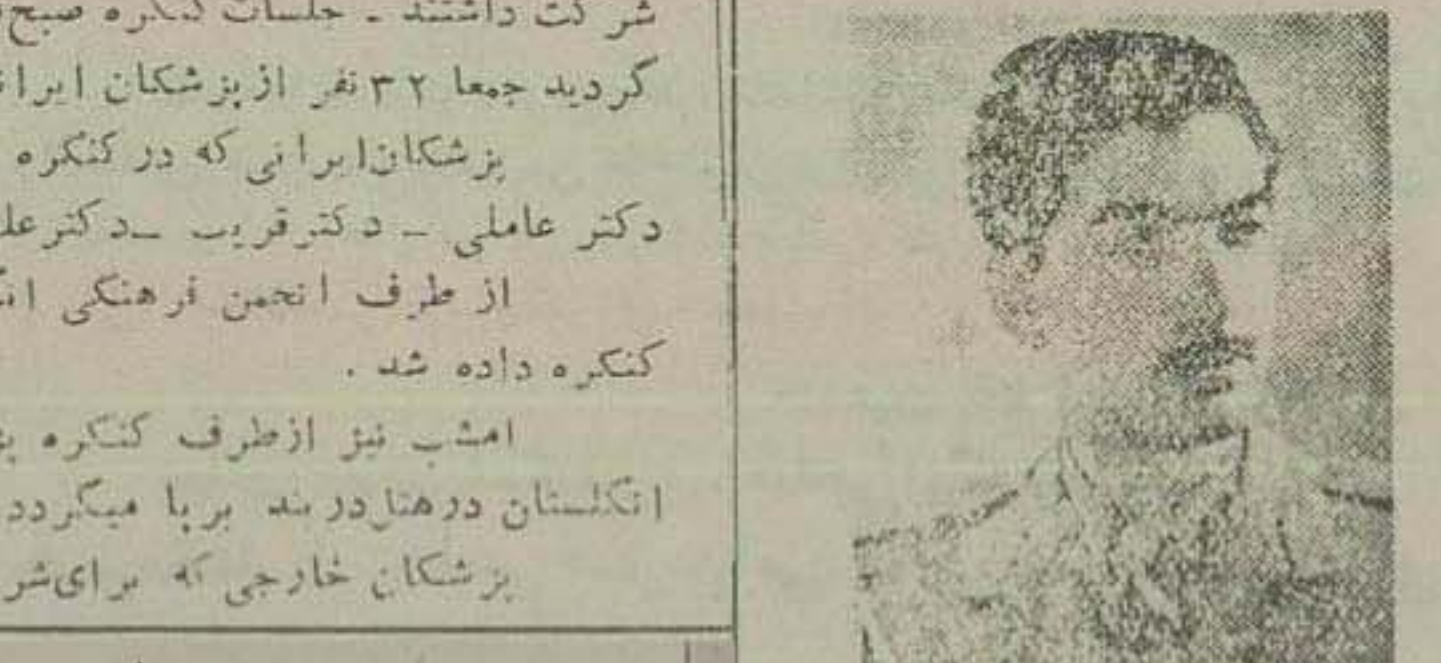 شرکت داشتند ـ جلسات کنگره صبح
گردید جمعا ۳۲ نفر از پزشکان ایرا
پزشکان ایرانی که در کنگره
دکتر عاملی ـ دکتر قریب ـ دکتر
از طرف انجمن فرهنگی
کنگره داده شد .
امشب نیز از طرف کنگره
انگلستان در هتل دربند برپا میگردد
پزشکان خارجی که برای